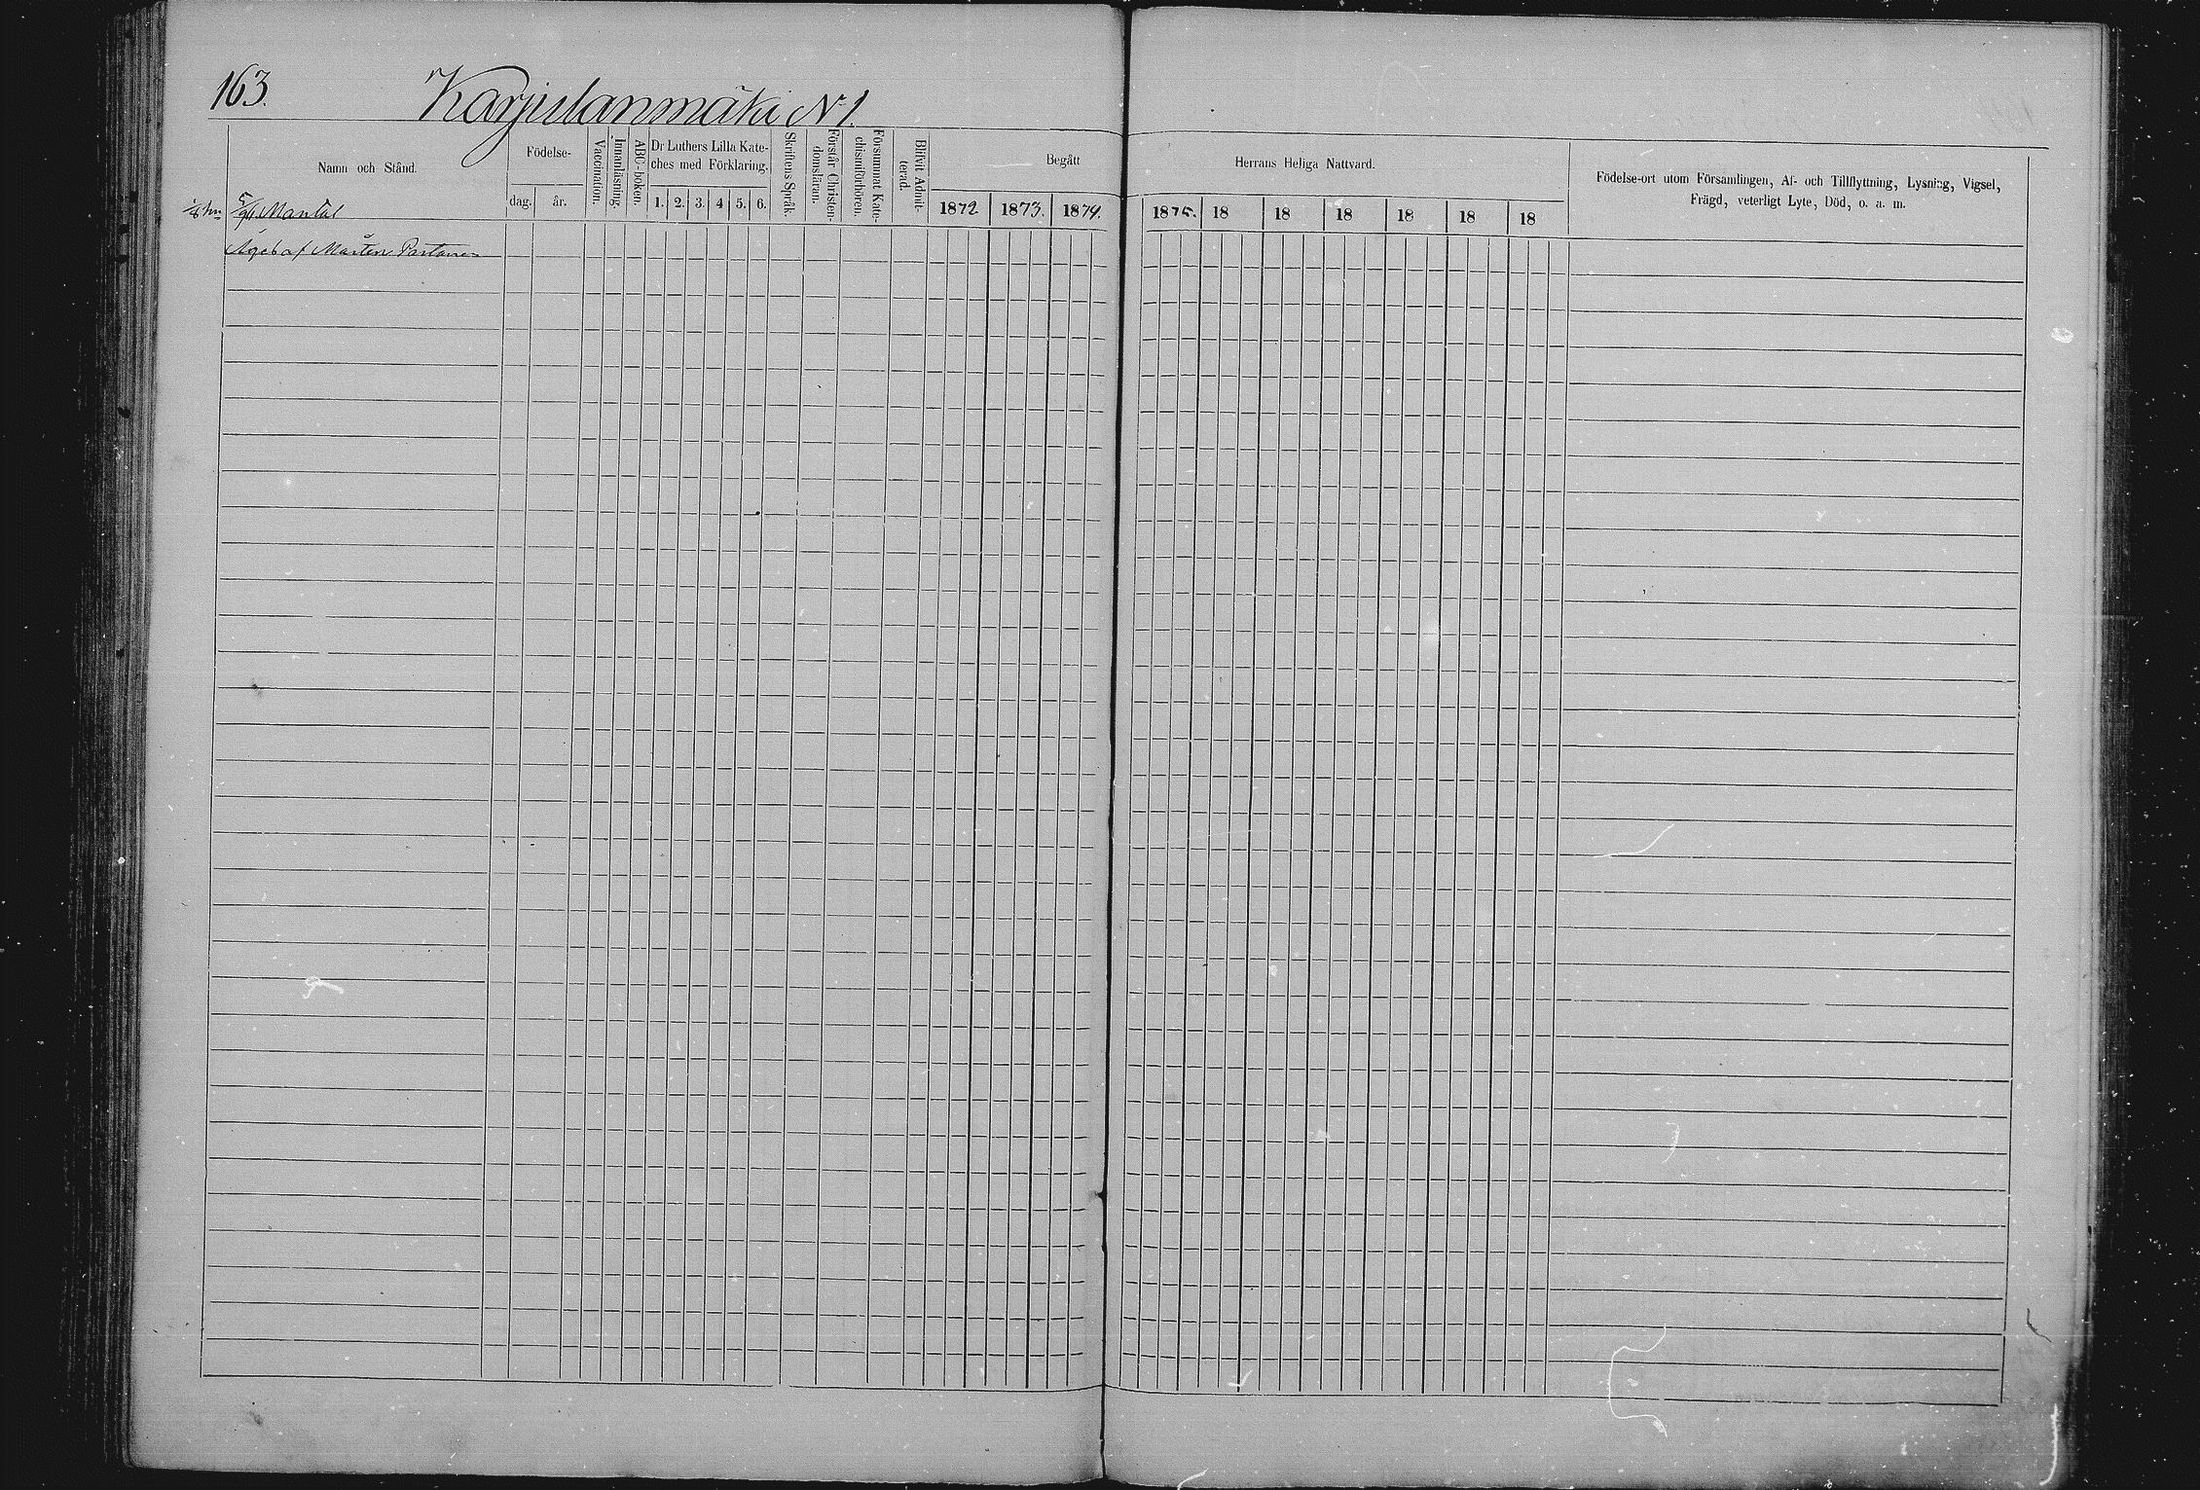 163.
Karjulanmäki N 1.
Namn och Stånd.
Födelse-
dag.
år.
Vaccination.
Innanläsning.
ABC-boken.
Dr Luthers Lilla Kate-
ches med Förklaring.
1. 2. 3. 4 5. 6.
Skriftens Språk.
Förstår Christen-
domsläran.
Försummat Kate-
chismiförhören.
Blifvit Admit-
terad.
Begått
1872. 1873. 1874.
Herrans Heliga Nattvard.
1875. 18 18 18 18 18 18
Födelse-ort utom Församlingen, Af- och Tillflyttning, Lysning, Vigsel,
Frägd, veterligt Lyte, Död, o. a. m.
5/96 Mantal
Äges af Mårten Partanen